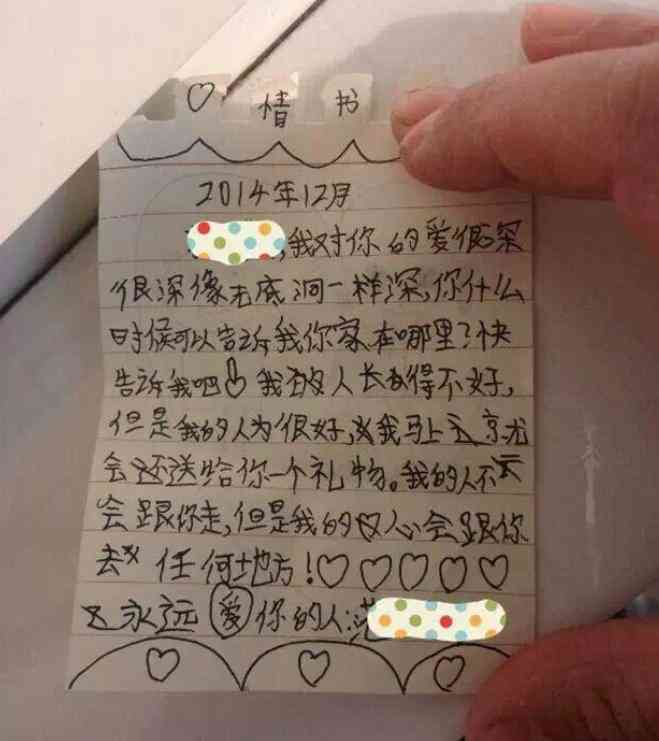 ♡ 情书
2014年12月
,我对你的爱很深
很深像无底洞一样深,你什么
时候可以告诉我你家在哪里?快
告诉我吧 我的人长得不好,
但是我的人为很好,我马上就
会送给你一个礼物。我的人不
会跟你走,但是我的心会跟你
去任何地方!♡♡♡♡♡
永远爱你的人: